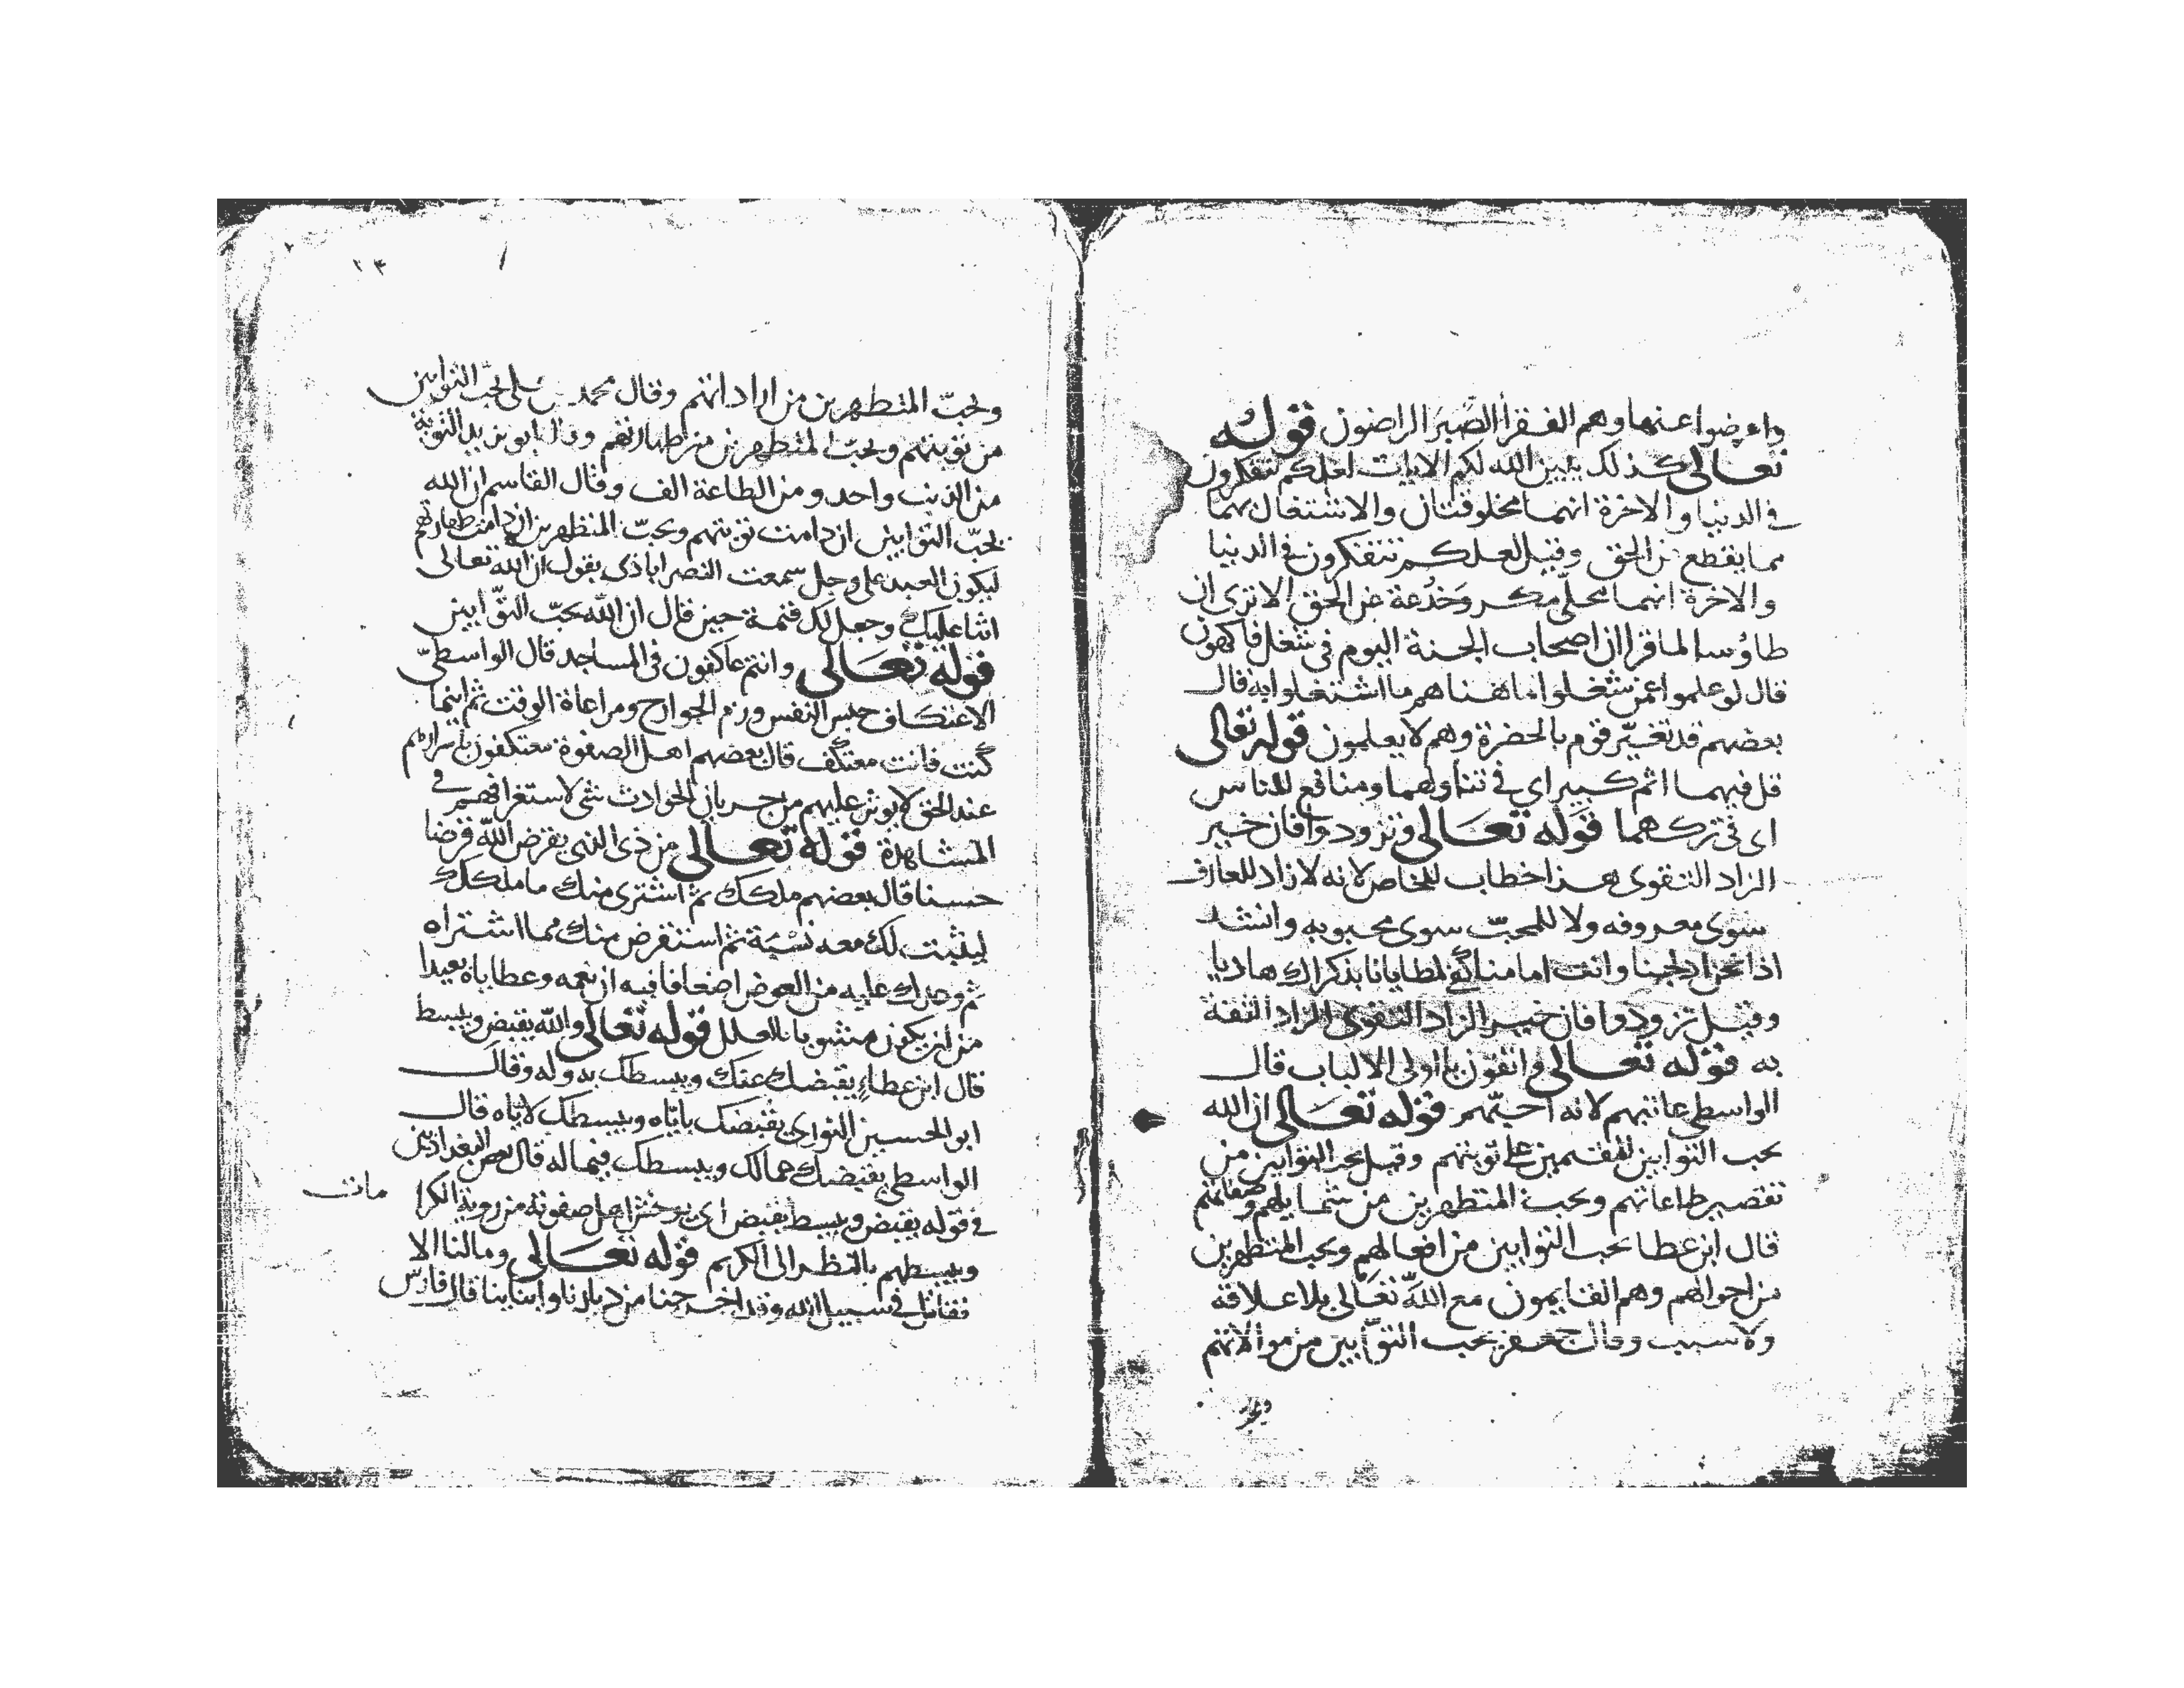 واعرضوا عنها وهم الفقرأ الصُّبَرَ الراضون قوله
تعالى كذلك يبين الله لكم الايات لعلكم تتفكرون
في الدنيا والاخرة انهما مخلوقتان والاشتغال بهما
مما يقطع عن الحق وقيل لعلكم تتفكرون في الدنيا
والاخرة انهما محلّ مكر وَخُدعة عن الحق الا ترى ان
طاوُسا لما قرا ان اصحاب الجنة اليوم في شغل فاكهون
قال لو علموا عمن شغلوا ما هناهم ما اشتغلوا به قال
بعضهم قد تغيّر قوم بالحضرة وهم لا يعلمون قوله تعالى
قل فيهما اثم كبير اي في تناولهما ومنافع للناس
اى في تركهما قوله تعالى وتزودوا فان خير
الزاد التقوى هذا خطاب للخاص لانه لا زاد للعارف
سوى معروفه ولا للمحبّ سوى محبوبه وانشد
اذا نحن ادلجنا وانت امامنا كفى لمطايانا بذكراك هاديا
وقيل تزودوا فان خير الزاد التقوى الزاد الثقة
به قوله تعالى واتقون يا اولى الالباب قال
الواسطى عاتبهم لانه احبّهم قوله تعالى ان الله
يحب التوابين المقيمين على توبتهم وقيل يحب التوابين من
تقصير طاعاتهم ويحب المتطهرين من شمايلهم وصفاتهم
قال ابن عطا يحب التوابين من افعالهم ويحب المتطهرين
من احوالهم وهم القايمون مع الله تعالى بلا علاقة
ولا سبب وقال جعفر يحب التوّابين من سوالاتهم
ويحب
ويحبّ المتطهرين من اراداتهم وقال محمد بن على يحبّ التوابين
من توبتهم ويحبّ المتطهرين من طهارتهم وقال ابو يزيد التوبة
من الذنب واحد ومن الطاعة الف وقال القاسم ان الله
يحبّ التوابين ان دامت توبتهم ويحبّ المتطهرين ان دامت طهارتهم
ليكون العبد على وجل سمعت النصراباذى يقول ان الله تعالى
اثنا عليك وجعل لك قيمة حين قال ان الله يحبّ التوّابين
قوله تعالى وانتم عاكفون في المساجد قال الواسطىّ
الاعتكاف حبس النفس وزم الجوارح ومراعاة الوقت ثم اينما
كنت فانت معتكف قال بعضهم اهل الصفوة معتكفون باسرارهم
عند الحق لا يوثر عليهم من جريان الحوادث شى لاستغراقهم في
المشاهدة قوله تعالى من ذى الذى يقرض الله قرضا
حسنا قال بعضهم ملكك ثم اشترى منك ما ملكك
ليثبت لك معه نسْبَة ثم استقرض منك مما اشتراه
ثم وعدك عليه من العوض اضعافا فيه ان نعمه وعطاياه بعيدا
من ان يكون مشوبا بالعلل قوله تعالى والله يقبض ويبسط
قال ابن عطاء يقبضك عنك ويبسطك به وله وقال
ابو الحسين النورى يقبضك باياه ويبسطك لاياه قال
الواسطى يقبضك عمالك ويبسطك فيما له قال بعض البغداديين
في قوله يقبض ويبسط يقبض اى يوحش اهل صفوته من روية الكرا
مات
ويبسطهم بالنظر الى الكريم قوله تعالى وما لنا الا
نقاتل في سبيل الله وقد اخرجنا من ديارنا وابنائنا قال فارسّ